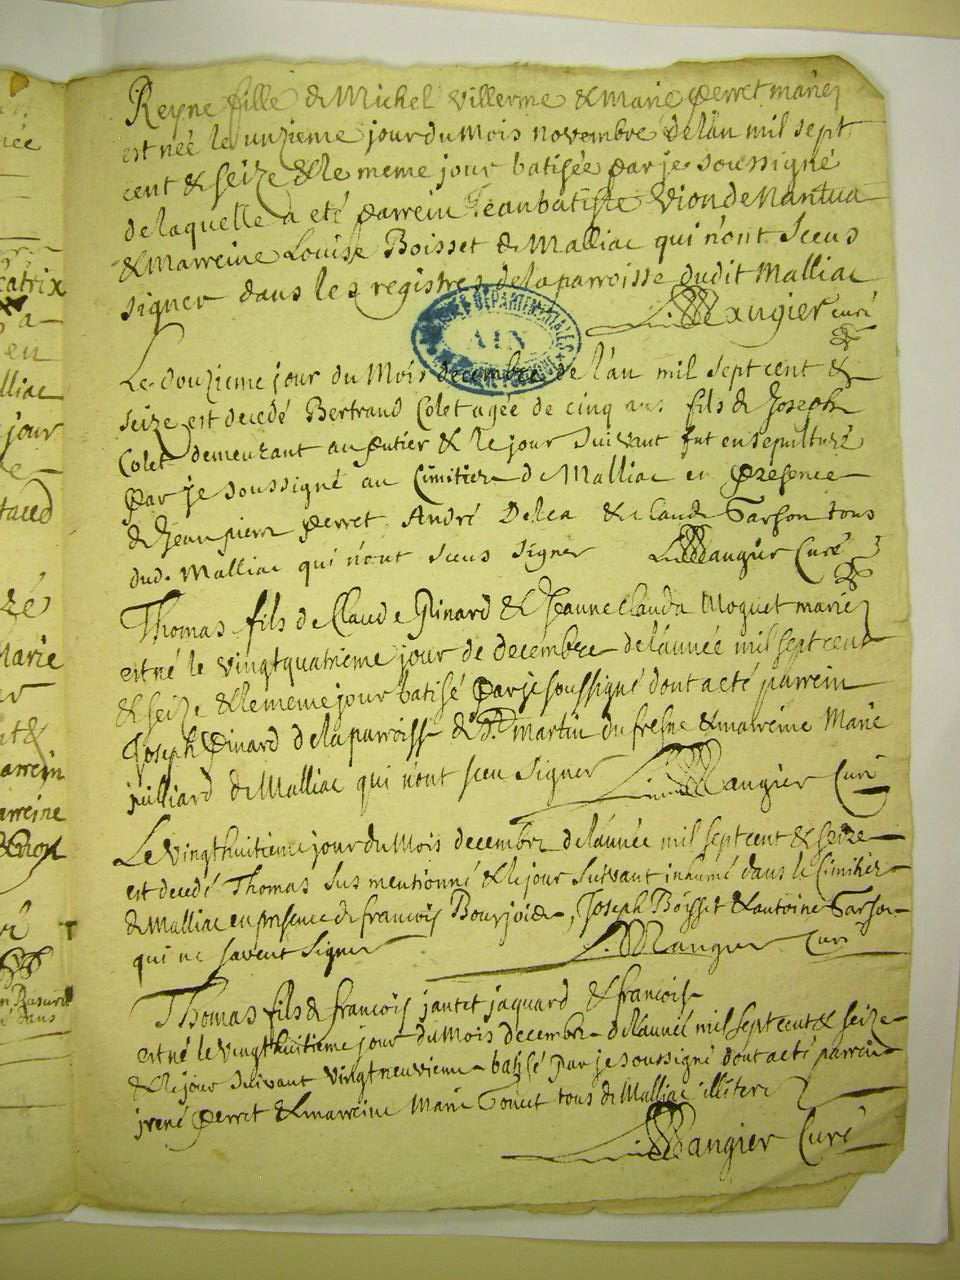 Reyne fille de Michel Villerme & Marie Perret mariez
est née le unzieme jour du mois novembre de lán mil sept
cent & seize & le meme jour batisée par je soussigné
de laquelle a eté parrein Jean batiste Vion de Nantua
& marreine Louise Boisset de Malliac qui nónt sceus
signer dans les registres de la parroisse dudit Malliac
Mangier curé
ARCHIVES DÉPARTEMENTALES
AIN
Le douzieme jour du Mois decembre de lán mil sept cent &
seize est decedé Bertrand Colet agée de cinq ans fils de Joseph
Colet demeurant au & le jour suivant fut ensepulturé
par je soussigné au Cimitier de Malliac en presence
de Jean pierre perret André Delea & Claude Garson tous
dud. Malliac qui nónt sceus signer Mangier Curé
Thomas fils de Claude Pinard & Jeanne Clauda Moquet mariez
est né le vingt quatrieme jour de decembre de lánnée mil sept cent
& seize & le meme jour batisé par je soussigné dont a eté parrein
Joseph Pinard de la parroisse de St martin du fresne & marreine Marie
juilliard de Malliac qui nónt sceu signer Mangier Curé
Le vingt huitieme jour du Mois decembre de lánnée mil sept cent & seize
est decedé Thomas sus mentionné & le jour suivant inhumé dans le Cimitier
de Malliac en presence de francois Bourjois, Joseph Boysset & antoine Garson
qui ne savent signer Mangier Curé
Thomas fils de francois jantet jaquard & francoise
est né le vingt huitieme jour du Mois decembre de lánnée mil sept cent & seize
& le jour suivant vingt neuvieme batisé par je soussigné dont a eté parrein
jrené perret & marreine Marie Gouet tous de Malliac illitere
Mangier Curé